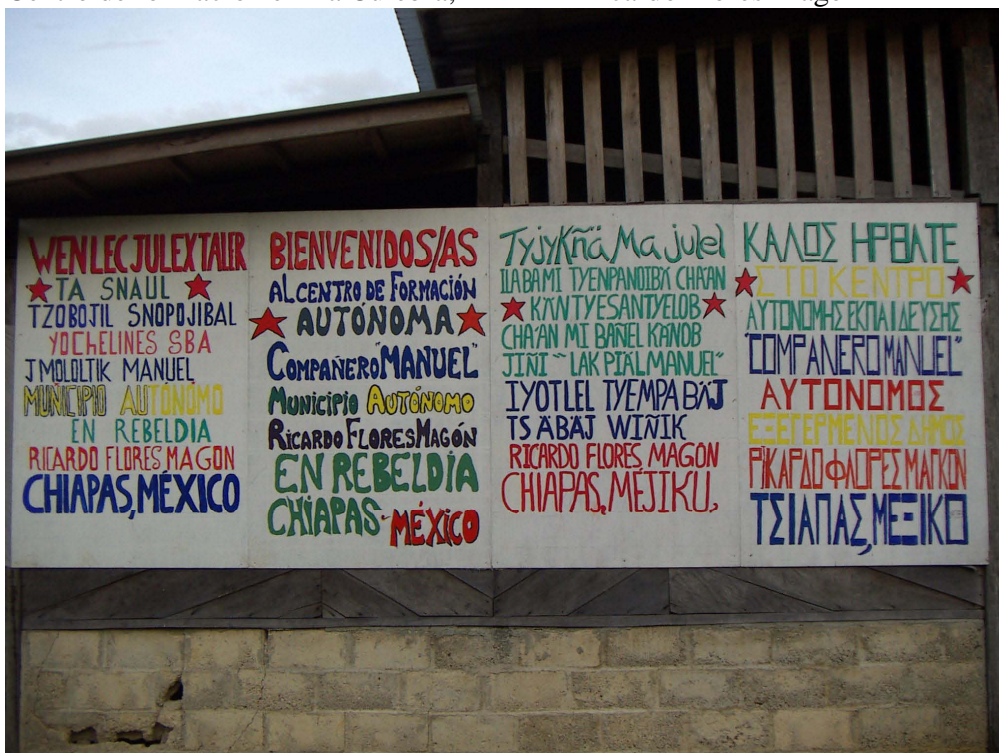 WEN LEC JULEX TALER
TA SNAUL
TZOBOJIL SNOPOJIBAL
YOCHELINES SBA
JMOLOLTIK MANUEL
MUNICIPIO AUTÓNOMO
EN REBELDIA
RICARDO FLORES MAGON
CHIAPAS, MÉXICO
BIENVENIDOS/AS
AL CENTRO DE FORMACIÓN
AUTÓNOMA
COMPAÑERO "MANUEL"
MUNICIPIO AUTÓNOMO
RICARDO FLORES MAGÓN
EN REBELDÍA
CHIAPAS MÉXICO
TyJyKñä Ma julel
ILABAMI TYENPANOIBÄ CHA'AN
KÄNTYESANTYELOB
CHA'AN MI BAÑEL KÄNOB
JIÑI "LAK PIÄL MANUEL"
IYOTLEL TYEMPA BÄJ
TSÄBÄJ WIÑIK
RICARDO FLORES MAGON
CHIAPAS, MÉJIKU,
ΚΑΛΩΣ ΗΡΘΑΤΕ
ΣΤΟ ΚΕΝΤΡΟ
ΑΥΤΟΝΟΜΗΣ ΕΚΠΑΙΔΕΥΣΗΣ
"COMPANERO MANUEL"
ΑΥΤΟΝΟΜΟΣ
ΕΞΕΓΕΡΜΕΝΟΣ ΔΗΜΟΣ
ΡΙΚΑΡΔΟ ΦΛΟΡΕΣ ΜΑΓΚΟΝ
ΤΣΙΑΠΑΣ, ΜΕΞΙΚΟ